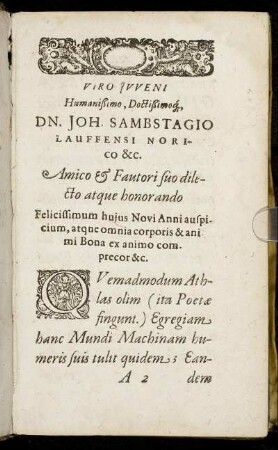 VIRO JVVENI
Humanißimo, Doctißimoq́;,
DN. JOH. SAMBSTAGIO
LAUFFENSI NORI-
co &c.
Amico & Fautori suo dile-
cto atque honorando
Felicissimum hujus Novi Anni auspi-
cium, atque omnia corporis & ani
mi Bona ex animo com-
precor &c.
QVemadmodum Ath-
las olim (ita Poetæ
fingunt.) Egregiam
hanc Mundi Machinam hu-
meris suis tulit quidem; Ean-
A 2 dem